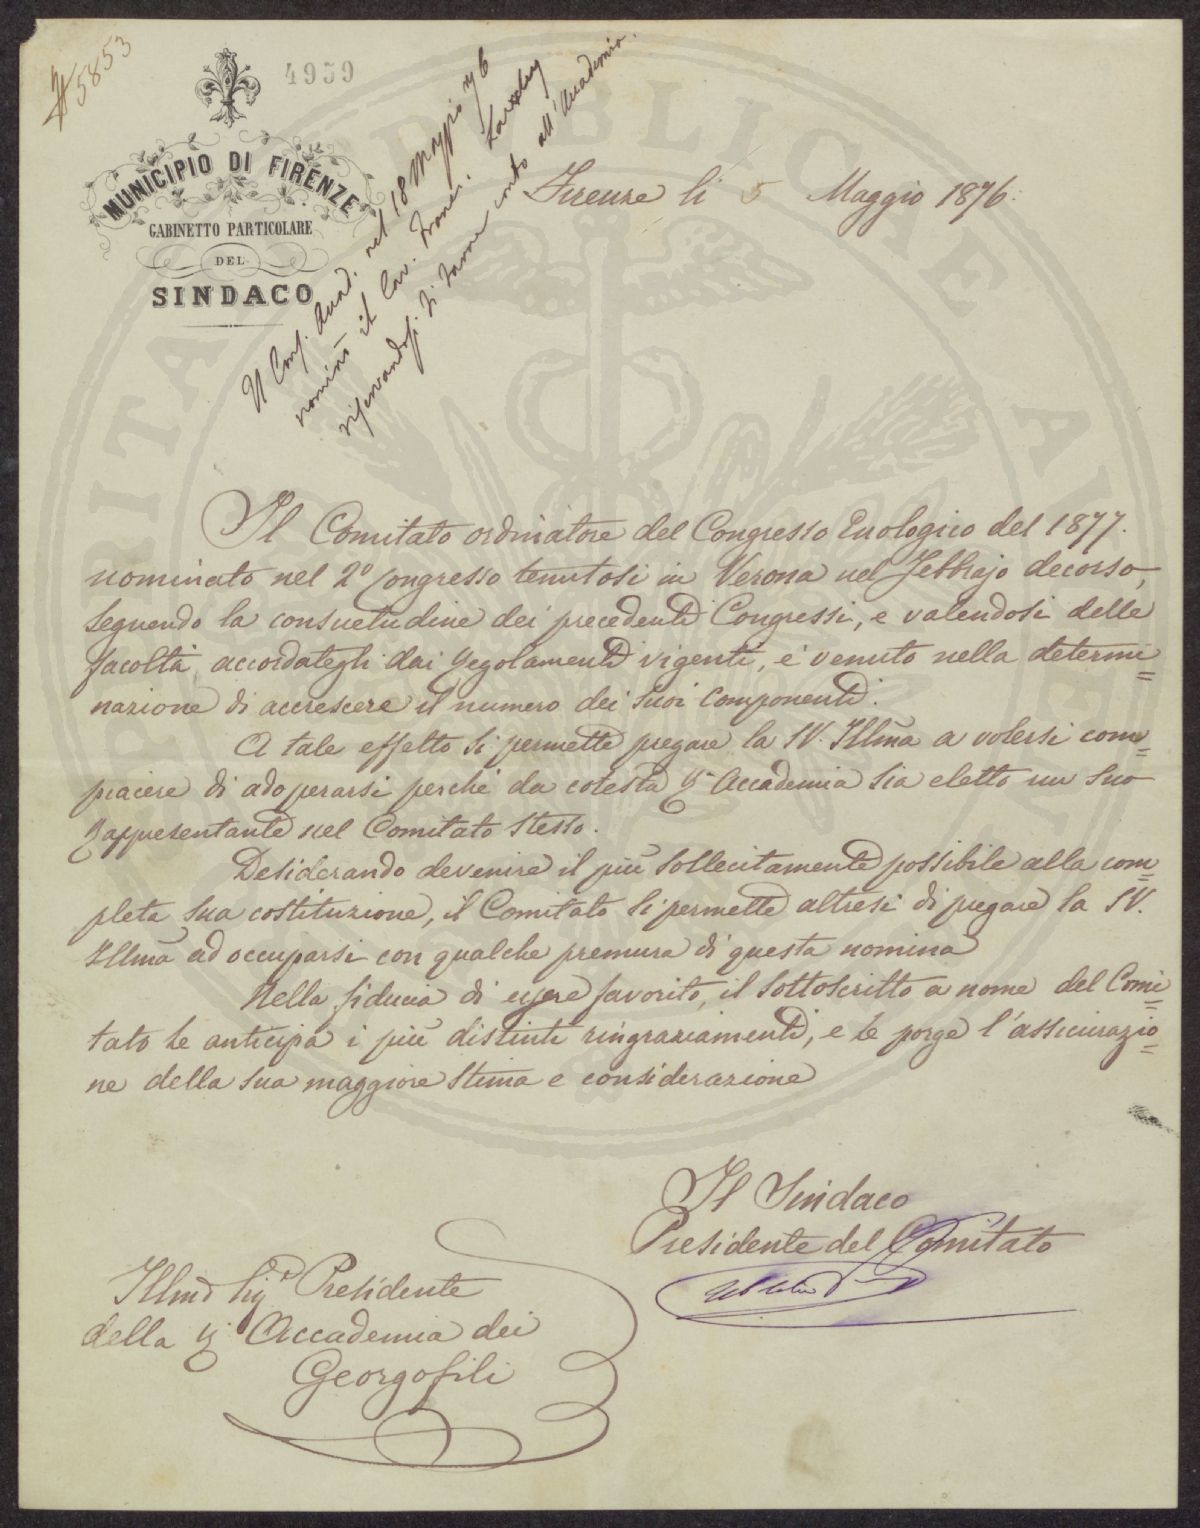 5853
4959
MUNICIPIO DI FIRENZE
GABINETTO PARTICOLARE
DEL
SINDACO
Il Cons. Accad. nel 18 Maggio 76
nominò il Cav. Franc.
riservandosi di darne conto all'Accademia.
Firenze li 5 Maggio 1876.
Il Comitato ordinatore del Congresso Enologico del 1877.
nominato nel 2º Congresso tenutosi in Verona nel Febbrajo decorso,
seguendo la consuetudine dei precedenti Congressi, e valendosi delle
facoltà accordategli dai Regolamenti vigenti, è venuto nella determi=
nazione di accrescere il numero dei suoi componenti.
A tale effetto si permette pregare la SV. Illma a volersi com=
piacere di adoperarsi perché da cotesta R. Accademia sia eletto un suo
rappresentante nel Comitato stesso.
Desiderando devenire il più sollecitamente possibile alla com=
pleta sua costituzione, il Comitato si permette altresì di pregare la SV.
Illma ad occuparsi con qualche premura di questa nomina
Nella fiducia di essere favorito, il sottoscritto a nome del Comi=
tato Le anticipa i più distinti ringraziamenti, e Le porge l'assicurazio=
ne della sua maggiore stima e considerazione
Il Sindaco
Presidente del Comitato
Illmo Sigr Presidente
della R. Accademia dei
Georgofili